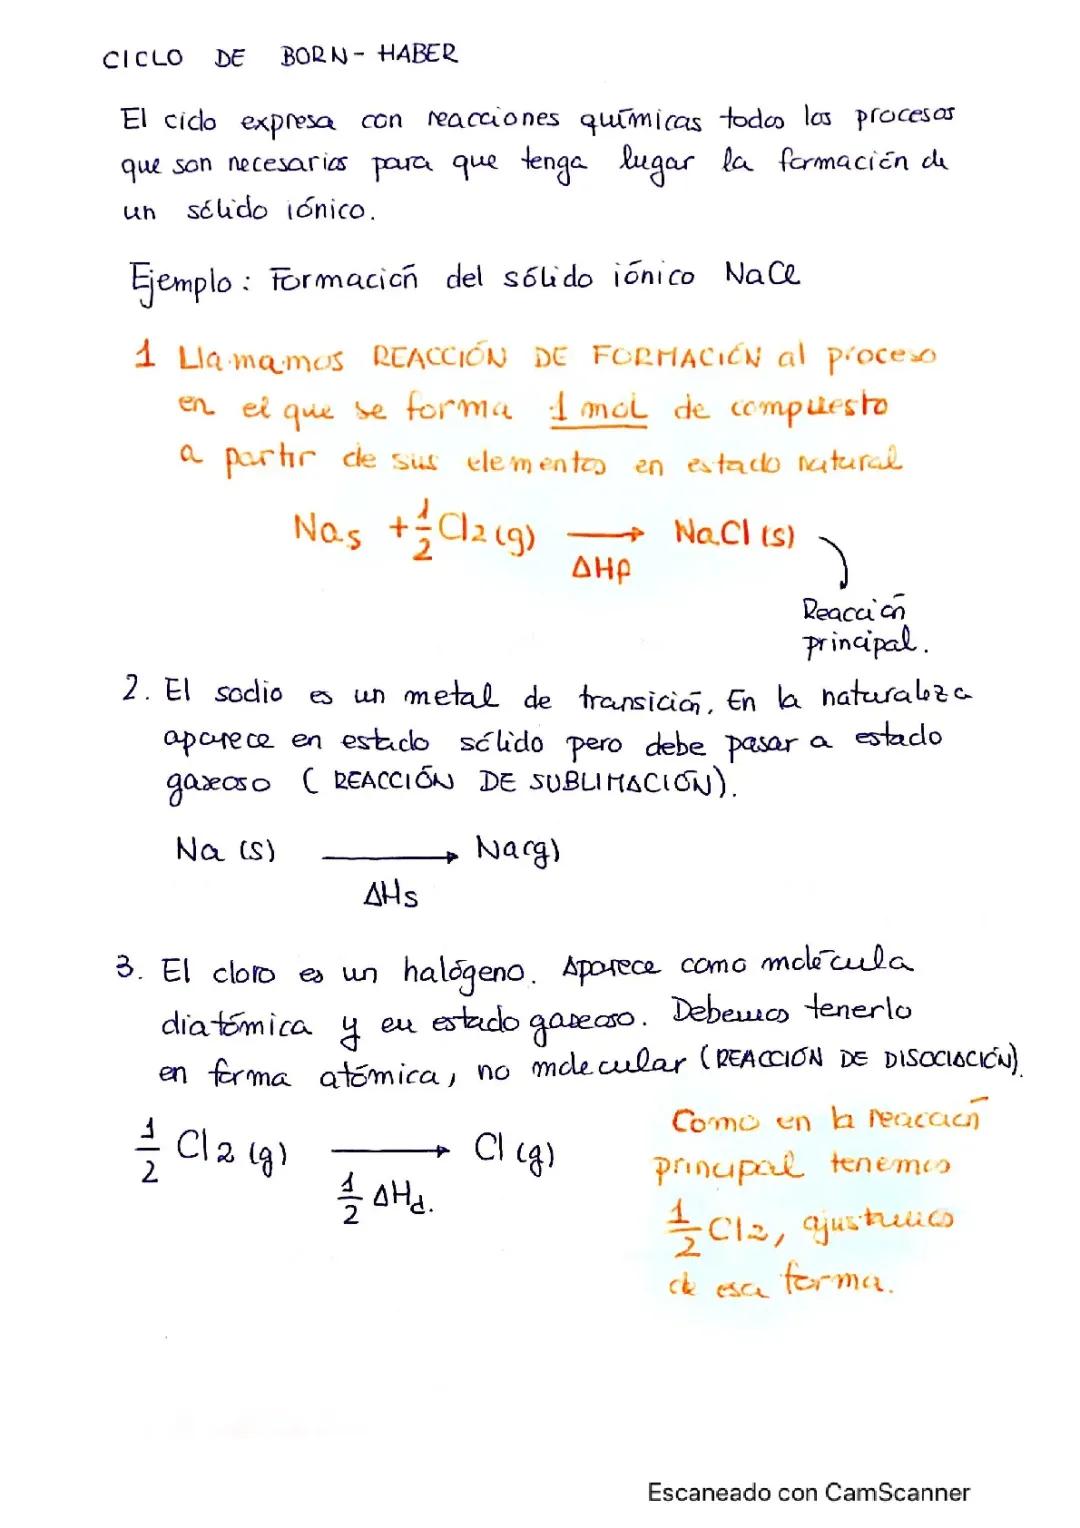 CICLO DE BORN-HABER
El ciclo expresa con reacciones químicas todos los procesos
que son necesarios para que tenga lugar la formación de
un sólido iónico.
Ejemplo: Formación del sólido iónico NaCl
1 Llamamos REACCIÓN DE FORMACIÓN al proceso
en el que se forma 1 mol de compuesto
a partir de sus elementos en estado natural
Na s + 1/2 Cl2 (g) → NaCl (s)
ΔHf
Reacción
principal.
2. El sodio es un metal de transición. En la naturaleza
aparece en estado sólido pero debe pasar a estado
gaseoso (REACCIÓN DE SUBLIMACIÓN).
Na (s) → Na(g)
ΔHs
3. El cloro es un halógeno. Aparece como molécula
diatómica y en estado gaseoso. Debemos tenerlo
en forma atómica, no molecular (REACCIÓN DE DISOCIACIÓN).
1/2 Cl2 (g) → Cl (g)
1/2 ΔHd.
Como en la reacción
principal tenemos
1/2 Cl2, ajustamos
de esa forma.
Escaneado con CamScanner